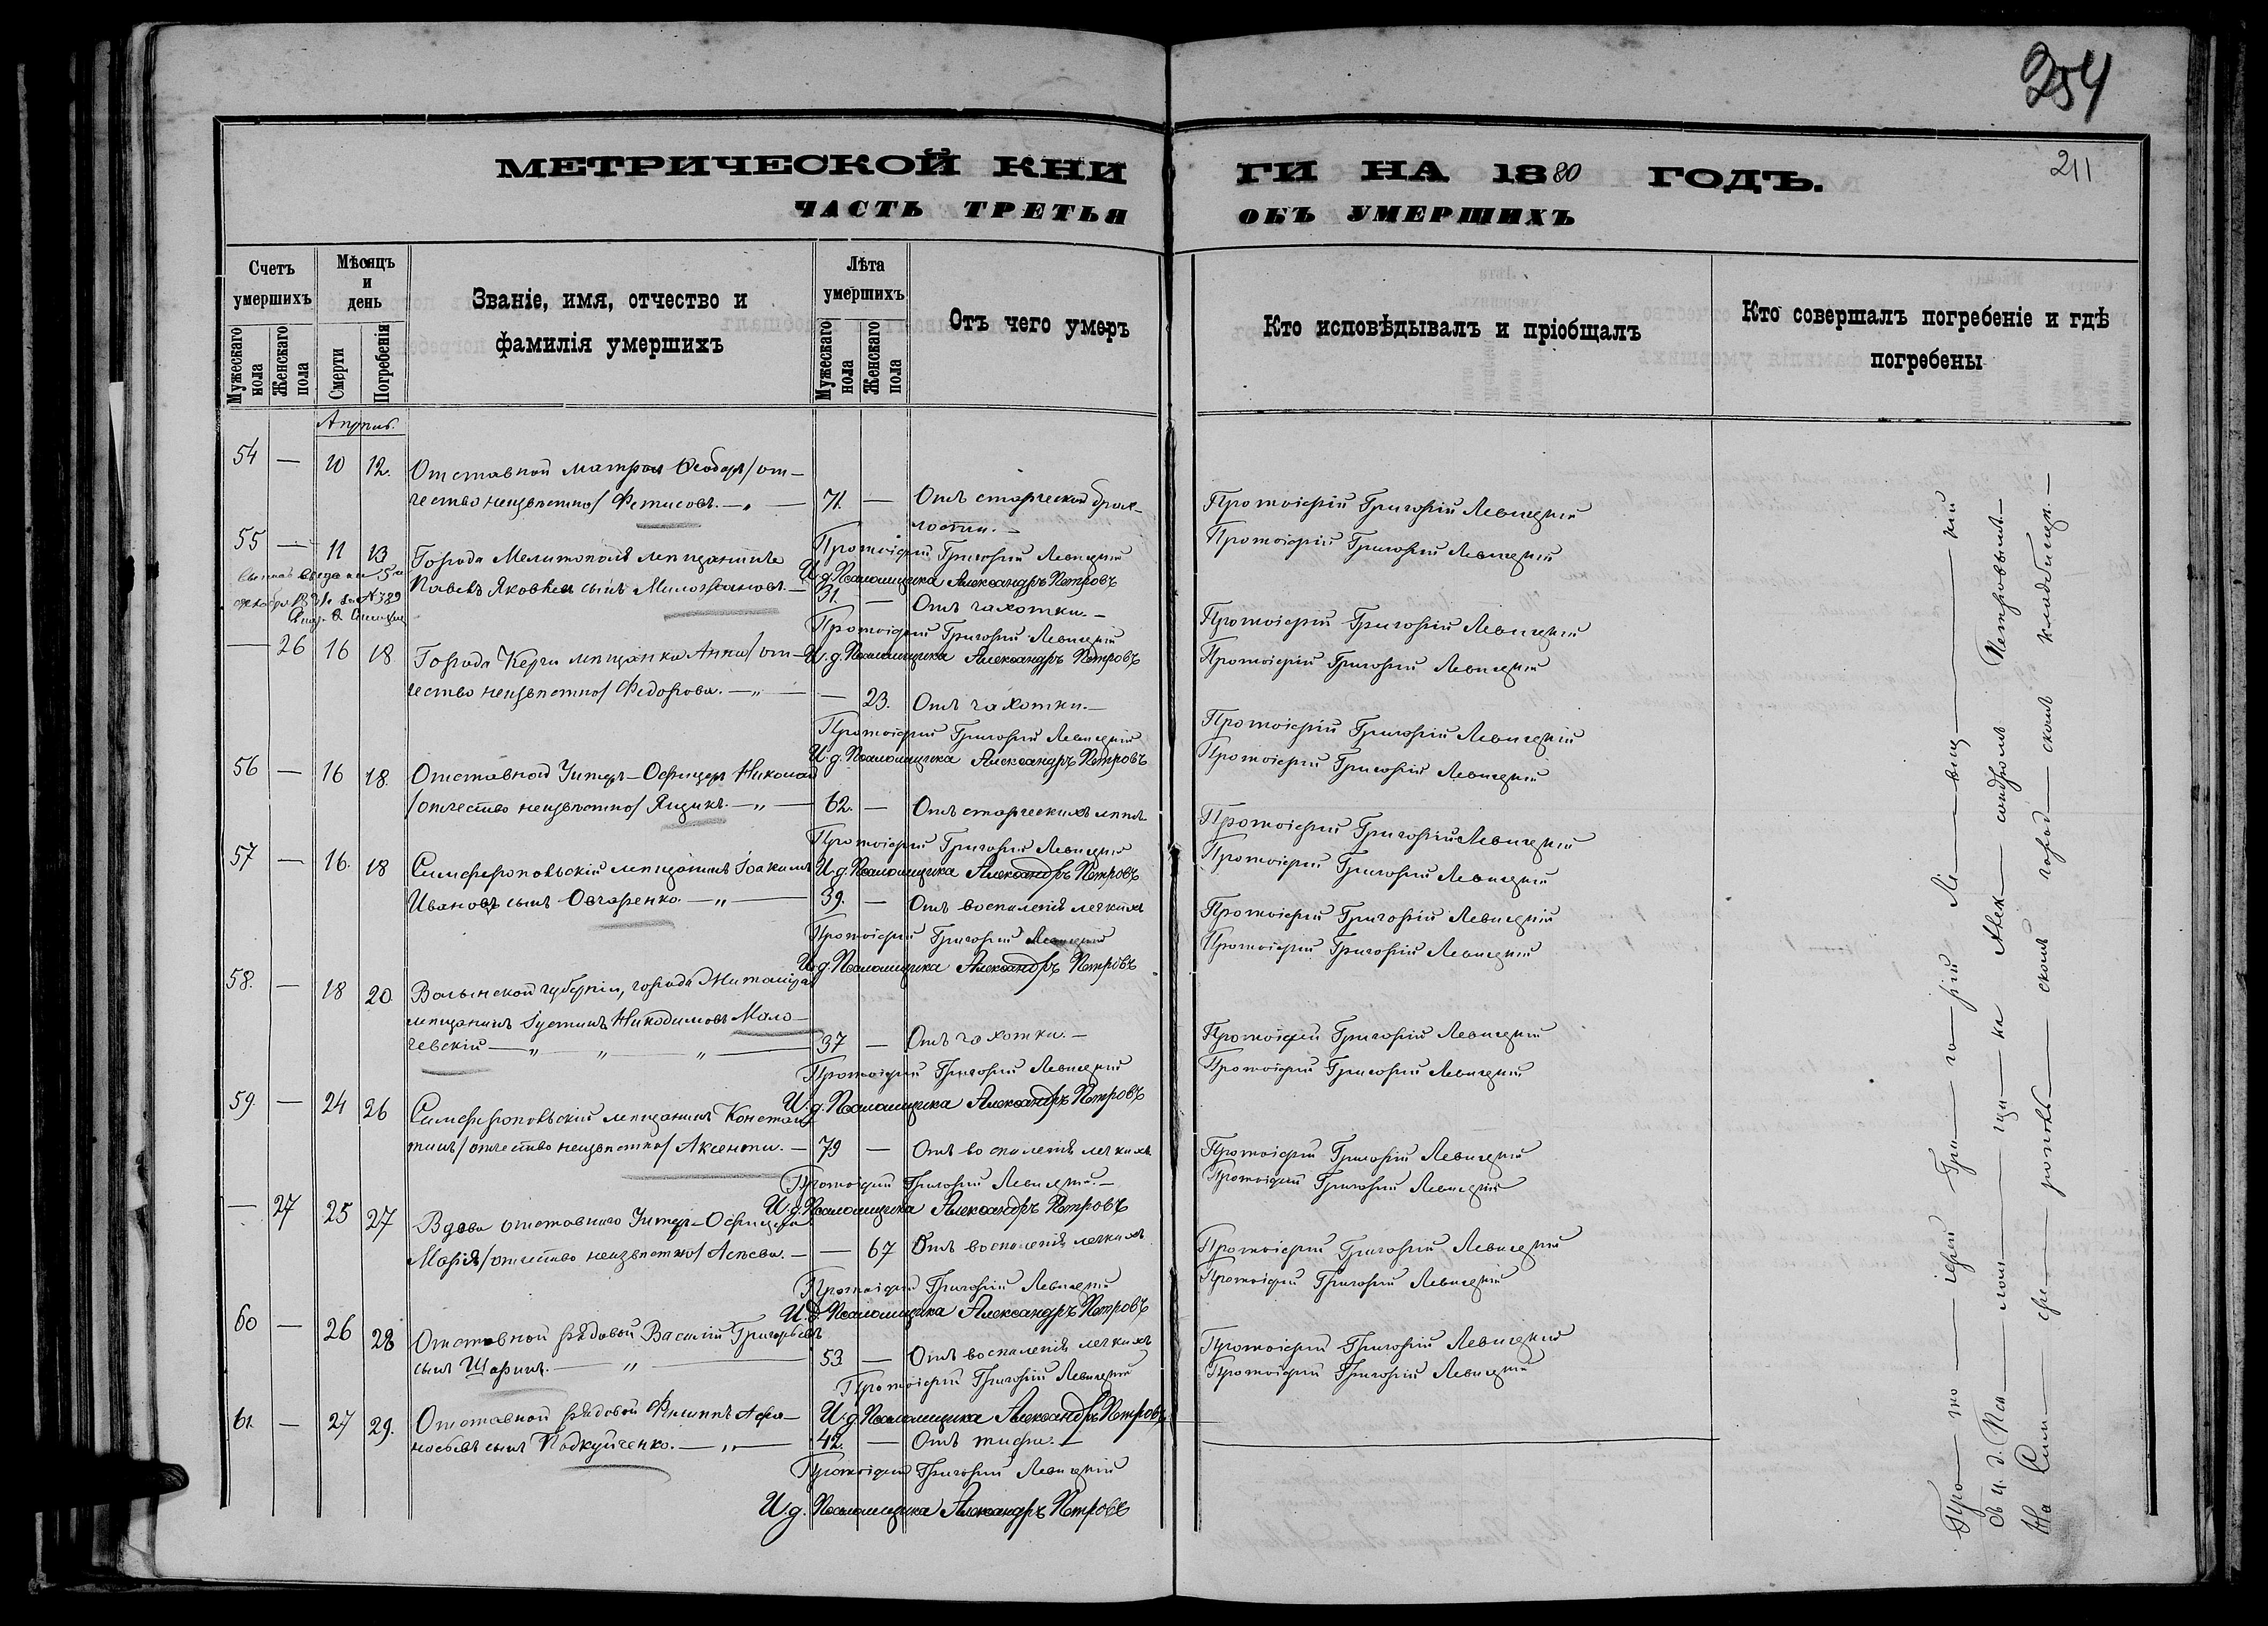 254
211
МЕТРИЧЕСКОЙ КНИГИ НА 1880 ГОДЪ.
ЧАСТЬ ТРЕТЬЯ ОБЪ УМЕРШИХЪ
Счетъ умершихъ
Мужескаго пола
Женскаго пола
Мѣсяцъ и день
Смерти
Погребенія
Званіе, имя, отчество и фамилія умершихъ
Лѣта умершихъ
Мужескаго пола
Женскаго пола
Отъ чего умеръ
Кто исповѣдывалъ и пріобщалъ
Кто совершалъ погребеніе и гдѣ погребены
Апрѣль.
54 — 10 12. Отставной матрозъ Ѳеодоръ /от-
чество неизвѣстно/ Фетисовъ. —„— 71. — Отъ старческой дрях-
лости. —
Протоіерей Григорій Левицкій
Протоіерей Григорій Левицкій
Протоіерей Григорій Левицкій
И.д. Псаломщика Александръ Петровъ
55 — 11 13 Города Мелитополя мѣщанинъ
Павелъ Яковлевъ сынъ Миловановъ. — 31. — Отъ чахотки. —
№ 389
Протоіерей Григорій Левицкій
Протоіерей Григорій Левицкій
Протоіерей Григорій Левицкій
И.д. Псаломщика Александръ Петровъ
— 26 16 18 Города Керчи мѣщанка Анна /от-
чество неизвѣстно/ Федорова. —„— — 23. Отъ чахотки. —
Протоіерей Григорій Левицкій
Протоіерей Григорій Левицкій
Протоіерей Григорій Левицкій
И.д. Псаломщика Александръ Петровъ
56 — 16 18. Отставной Унтеръ-Офицеръ Николай
/отчество неизвѣстно/ Ящикъ. —„— 62. — Отъ старческихъ лѣтъ
Протоіерей Григорій Левицкій
Протоіерей Григорій Левицкій
Протоіерей Григорій Левицкій
И.д. Псаломщика Александръ Петровъ
57 — 16. 18 Симферопольскій мѣщанинъ Іоакимъ
Ивановъ сынъ Овчаренко. —„— 39. — Отъ воспаленія легкихъ
Протоіерей Григорій Левицкій
Протоіерей Григорій Левицкій
Протоіерей Григорій Левицкій
И.д. Псаломщика Александръ Петровъ
58. — 18 20 Волынской губерніи, города Житоміра
мѣщанинъ Іустинъ Никодимовъ Мало-
чевскій —„—„—„— 37 — Отъ чахотки. —
Протоіерей Григорій Левицкій
Протоіерей Григорій Левицкій
Протоіерей Григорій Левицкій
И.д. Псаломщика Александръ Петровъ
59. — 24 26 Симферопольскій мѣщанинъ Констан-
тинъ /отчество неизвѣстно/ Аксенти. — 79 — Отъ воспаленія легкихъ
Протоіерей Григорій Левицкій
Протоіерей Григорій Левицкій
Протоіерей Григорій Левицкій
И.д. Псаломщика Александръ Петровъ
— 27 25 27 Вдова отставнаго Унтеръ-Офицера
Марія /отчество неизвѣстно/ — — 67 Отъ воспаленія легкихъ
Протоіерей Григорій Левицкій
Протоіерей Григорій Левицкій
Протоіерей Григорій Левицкій
И.д. Псаломщика Александръ Петровъ
60 — 26 28 Отставной рядовой Василій Григорьевъ
сынъ Шаринъ. —„— 53 — Отъ воспаленія легкихъ
Протоіерей Григорій Левицкій
Протоіерей Григорій Левицкій
Протоіерей Григорій Левицкій
И.д. Псаломщика Александръ Петровъ
61. — 27 29. Отставной рядовой Филиппъ Афа-
насьевъ сынъ Подкуйченко. —„— 42. — Отъ тифа. —
Протоіерей Григорій Левицкій
И.д. Псаломщика Александръ Петровъ
Про—то—іерей Гри—го—рій Ле—виц—кій
съ и. д. Пса—лом—щи—ка Алек—сандромъ Петровымъ —
На Сим—фе—рополь—скомъ город—скомъ кладбищѣ. —